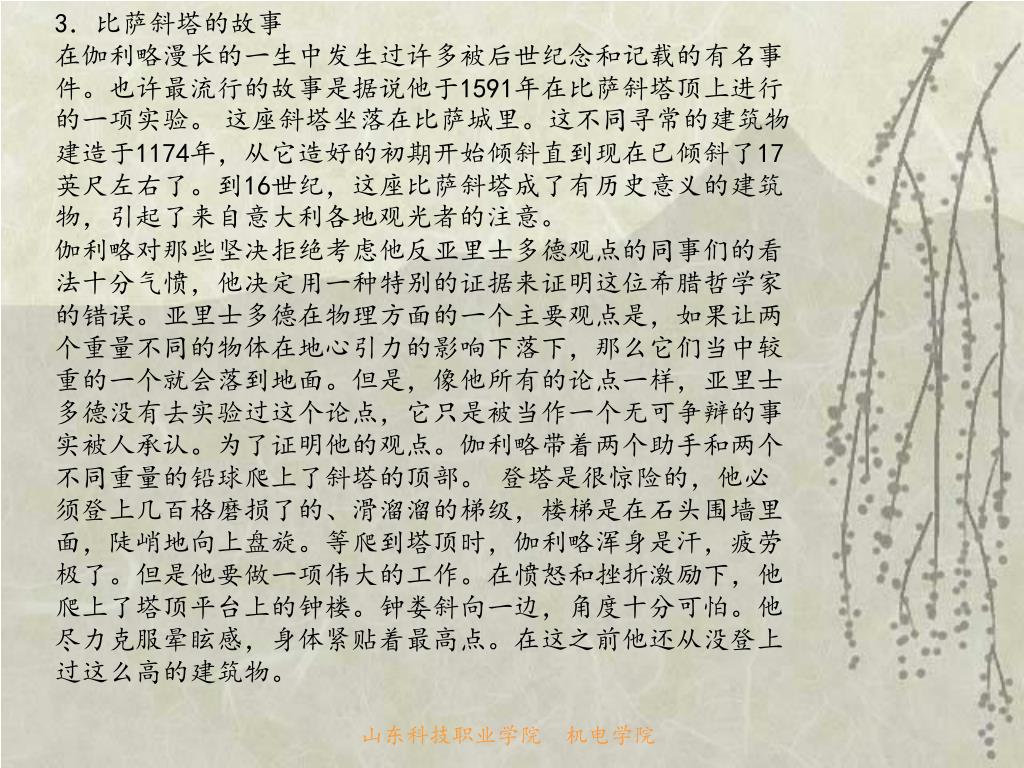 3. 比萨斜塔的故事
在伽利略漫长的一生中发生过许多被后世纪念和记载的有名事
件。也许最流行的故事是据说他于1591年在比萨斜塔顶上进行
的一项实验。 这座斜塔坐落在比萨城里。这不同寻常的建筑物
建造于1174年，从它造好的初期开始倾斜直到现在已倾斜了17
英尺左右了。到16世纪，这座比萨斜塔成了有历史意义的建筑
物，引起了来自意大利各地观光者的注意。
伽利略对那些坚决拒绝考虑他反亚里士多德观点的同事们的看
法十分气愤，他决定用一种特别的证据来证明这位希腊哲学家
的错误。亚里士多德在物理方面的一个主要观点是，如果让两
个重量不同的物体在地心引力的影响下落下，那么它们当中较
重的一个就会落到地面。但是，像他所有的论点一样，亚里士
多德没有去实验过这个论点，它只是被当作一个无可争辩的事
实被人承认。为了证明他的观点。伽利略带着两个助手和两个
不同重量的铅球爬上了斜塔的顶部。 登塔是很惊险的，他必
须登上几百格磨损了的、滑溜溜的梯级，楼梯是在石头围墙里
面，陡峭地向上盘旋。等爬到塔顶时，伽利略浑身是汗，疲劳
极了。但是他要做一项伟大的工作。在愤怒和挫折激励下，他
爬上了塔顶平台上的钟楼。钟娄斜向一边，角度十分可怕。他
尽力克服晕眩感，身体紧贴着最高点。在这之前他还从没登上
过这么高的建筑物。
山东科技职业学院 机电学院